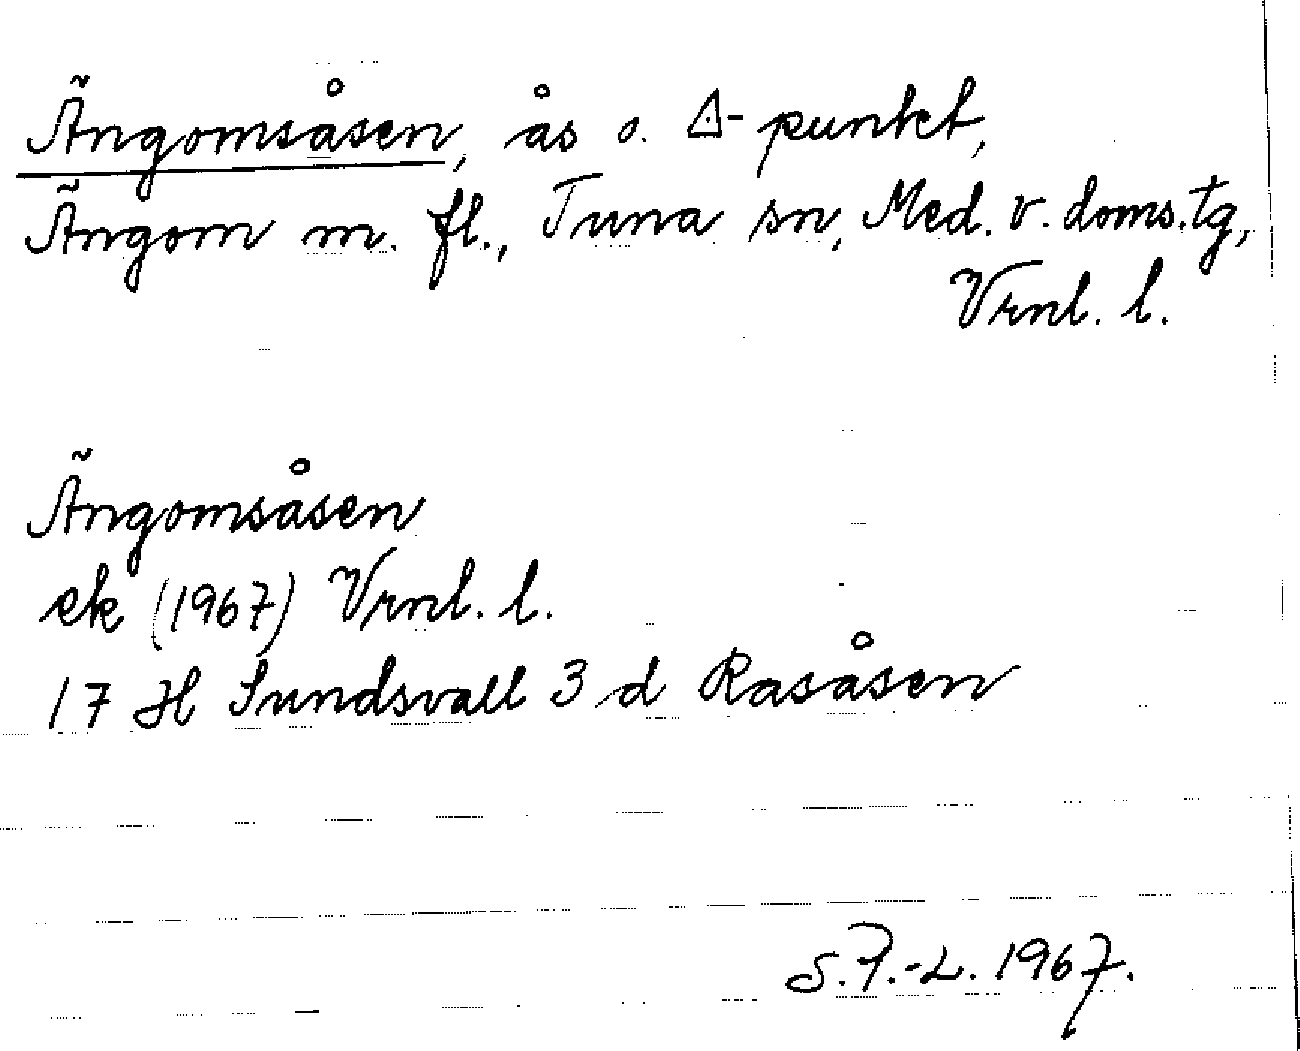 Ängomsåsen, ås o. △-punkt,
Ängom m. fl., Tuna sn, Med. v. doms. tg,
Vrnl. l.
Ängomsåsen
ek (1967) Vrnl. l.
17 H Sundsvall 3 d Rasåsen
S.P.-L. 1967.